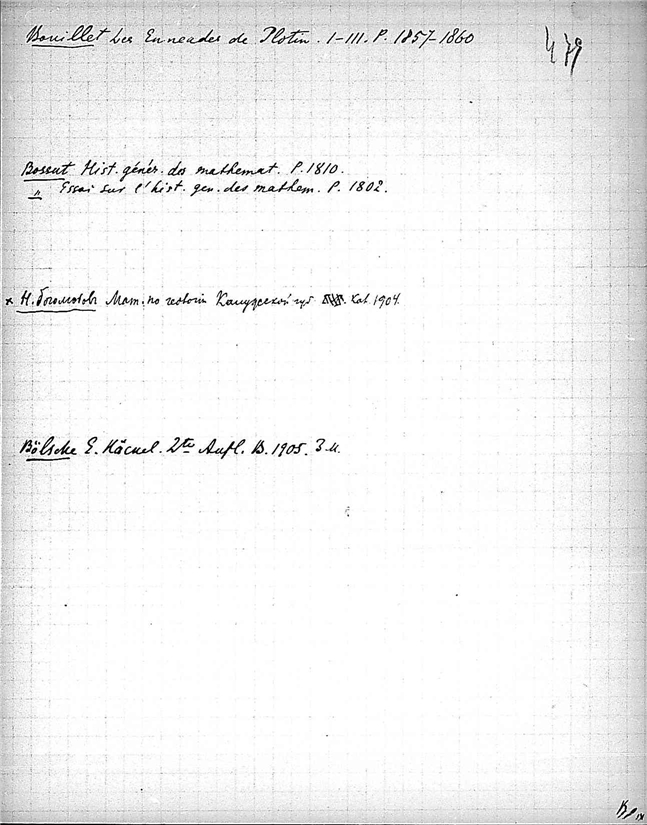 Bouillet Les Enneades de Plotin. I–III. P. 1857–1860
479
Bossut Hist. génér. des mathemat. P. 1810.
„ Essai sur l'hist. gen. des mathem. P. 1802.
× Н. Богомолов Мат. по геологіи Калужской губ. Кал. 1904.
Bölsche E. Häckel. 2te Aufl. B. 1905. 3 M.